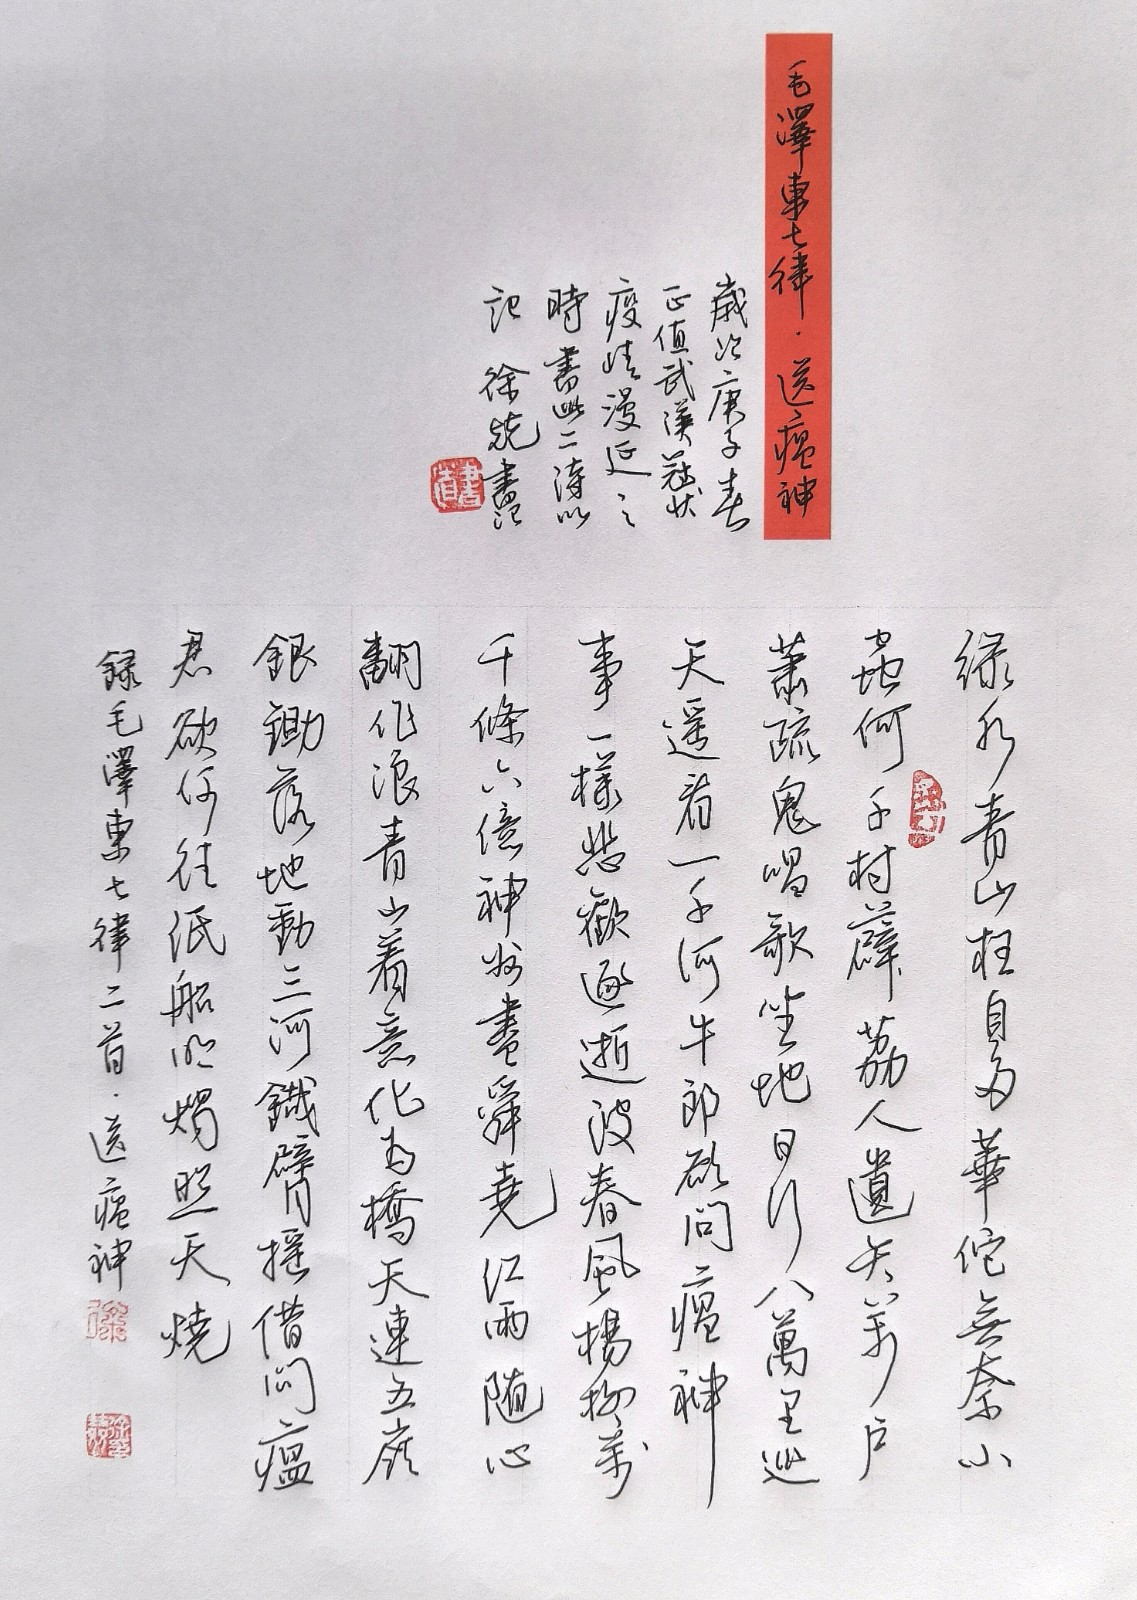 毛澤東七律·送瘟神
歲次庚子春
正值武漢冠状
疫情漫延之
時書此二詩以
記 徐
綠水青山枉自多華佗無奈小
虫何千村薜荔人遺矢万户
蕭疏鬼唱歌坐地日行八萬里巡
天遥看一千河牛郎欲問瘟神
事一樣悲歡逐逝波春風楊柳萬
千條六億神州盡舜堯红雨随心
翻作浪青山着意化為橋天連五嶺
銀鋤落地動三河鐵臂摇借问瘟
君欲何往纸船明燭照天燒
録毛澤東七律二首·送瘟神